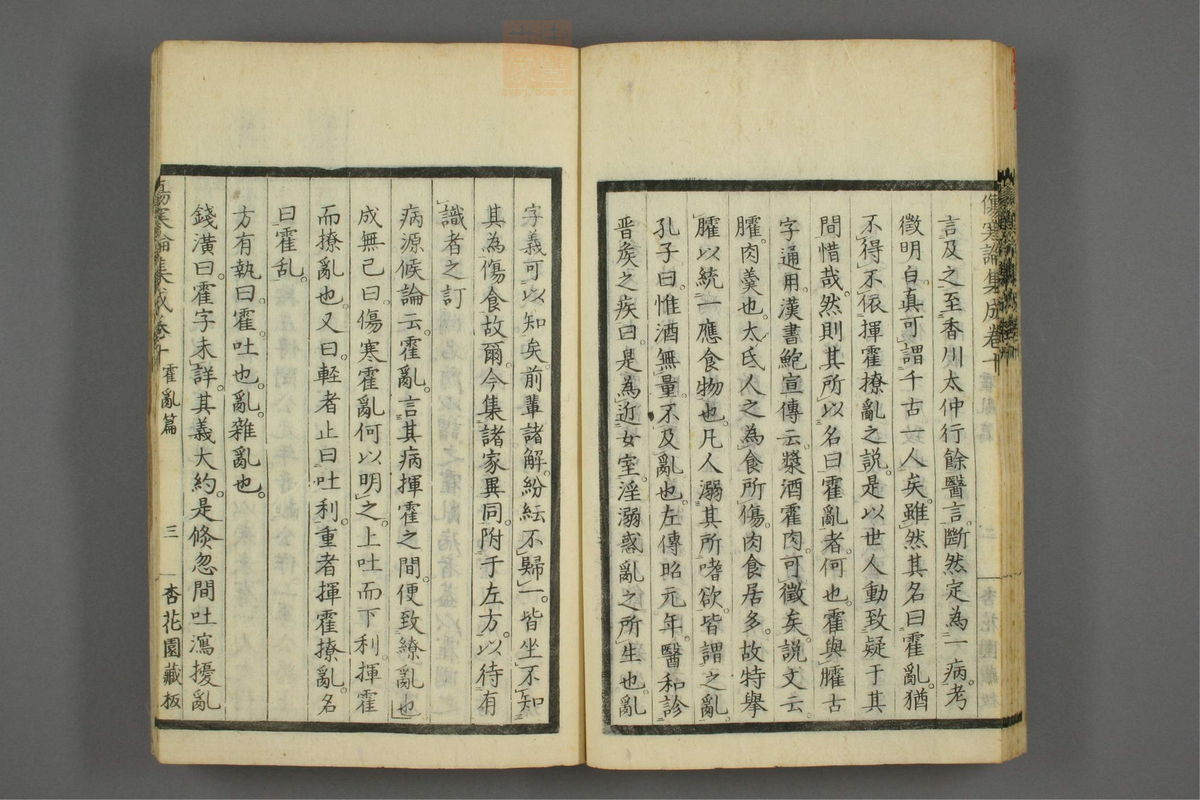 傷寒論集成卷十
言及之至香川太仲行餘醫言。斷然定為一病。考
徵明白。真可謂千古一人矣。雖然其名曰霍亂。猶
不得不依揮霍撩亂之說。是以世人動致疑于其
間惜哉。然則其所以名曰霍亂者。何也。霍與臛古
字通用。漢書鮑宣傳云。漿酒霍肉。可徵矣。說文云。
臛。肉羹也。太氐人之為食所傷。肉食居多。故特舉
臛以統一應食物也。凡人溺其所嗜欲。皆謂之亂。
孔子曰。惟酒無量。不及亂也。左傳昭元年。醫和診
晉侯之疾曰。是為近女室。淫溺惑亂之所生也。亂
字義可以知矣。前輩諸解。紛紜不歸一。皆坐不知
其為傷食故爾。今集諸家異同。附于左方。以待有
識者之訂
病源候論云。霍亂。言其病揮霍之間。便致繚亂也。
成無己曰。傷寒霍亂何以明之。上吐而下利。揮霍
而撩亂也。又曰。輕者止曰吐利。重者揮霍撩亂。名
曰霍乱。
方有執曰。霍。吐也。亂。雜亂也。
錢潢曰。霍字未詳。其義大約。是倏忽間吐瀉擾亂
傷寒論集成卷十 霍亂篇 三 杏花園藏板